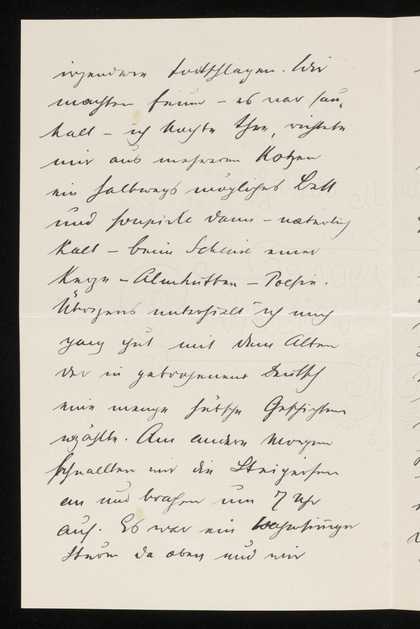 irgendwie todtschlagen. Wir
machten Feuer – es war sau-
kalt – ich kochte Thee, richtete
mir aus mehreren Kotzen
ein halbwegs mögliches Bett
und soupirte dann – natürlich
kalt – beim Scheine einer
Kerze – Almhütten – Poesie.
Übrigens unterhielt ich mich
ganz gut mit dem Alten
der in gebrochenem Deutsch
eine menge hübsche Geschichten
erzählte. Am andern Morgen
schnallten wir die Steigeisen
an und brachen um 7 Uhr
auf. Es war ein wahnsinniger
Sturm da oben und wir